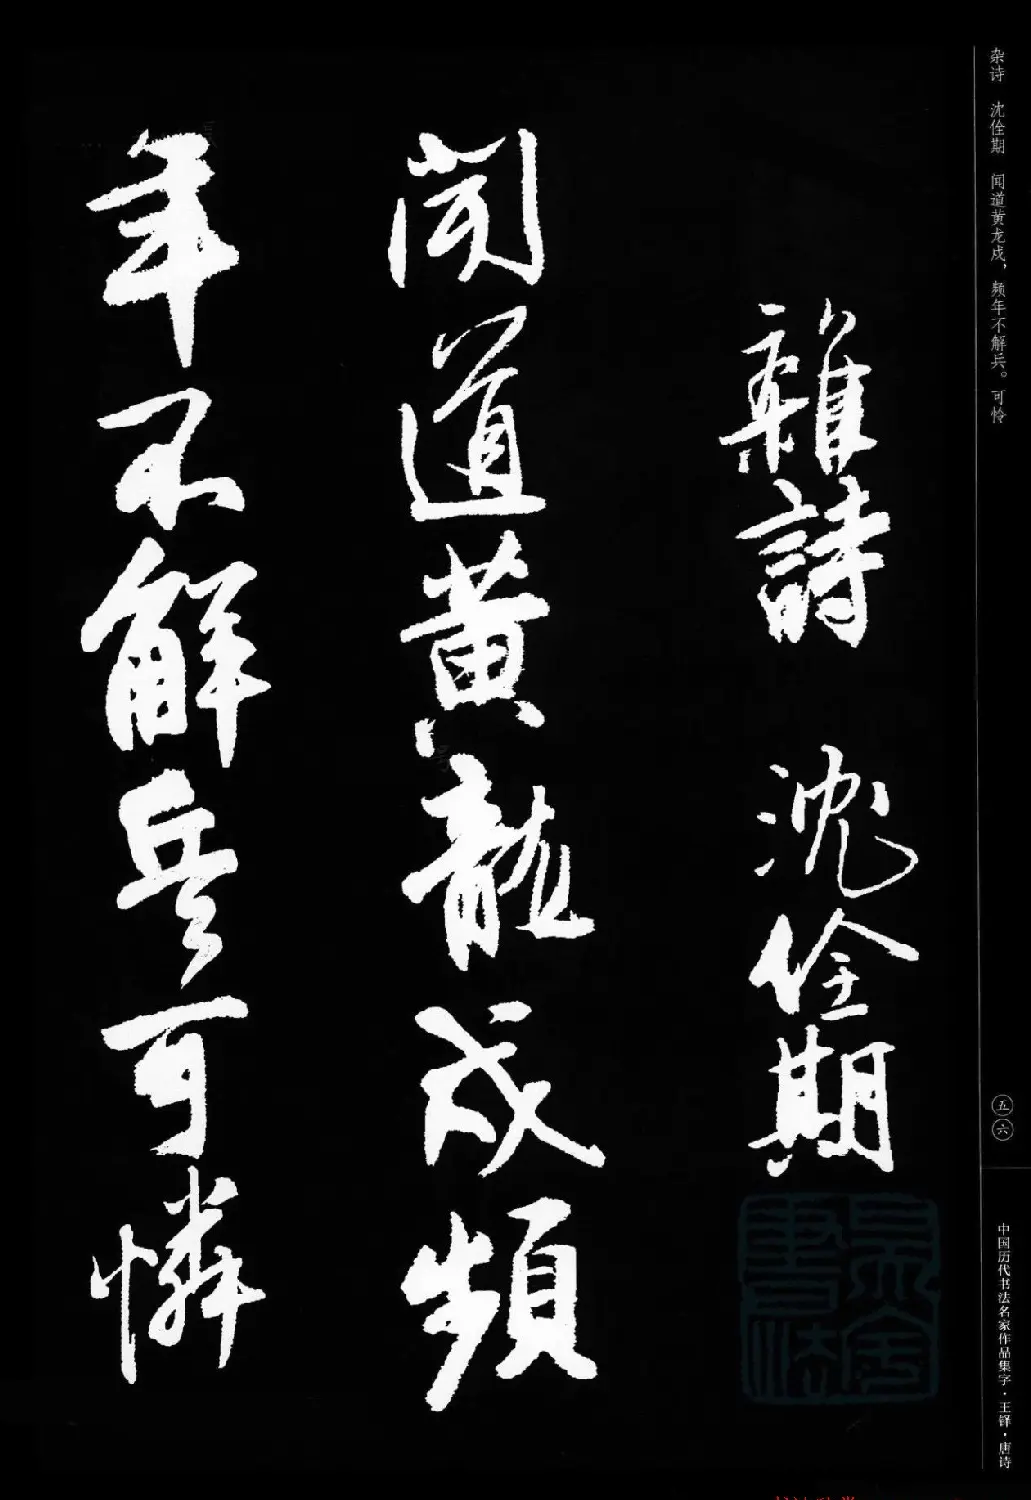 杂诗 沈佺期 闻道黄龙戍，频年不解兵。可怜
雜詩 沈佺期
聞道黄龍戍頻
年不解兵可憐
五六
中国历代书法名家作品集字·王铎·唐诗